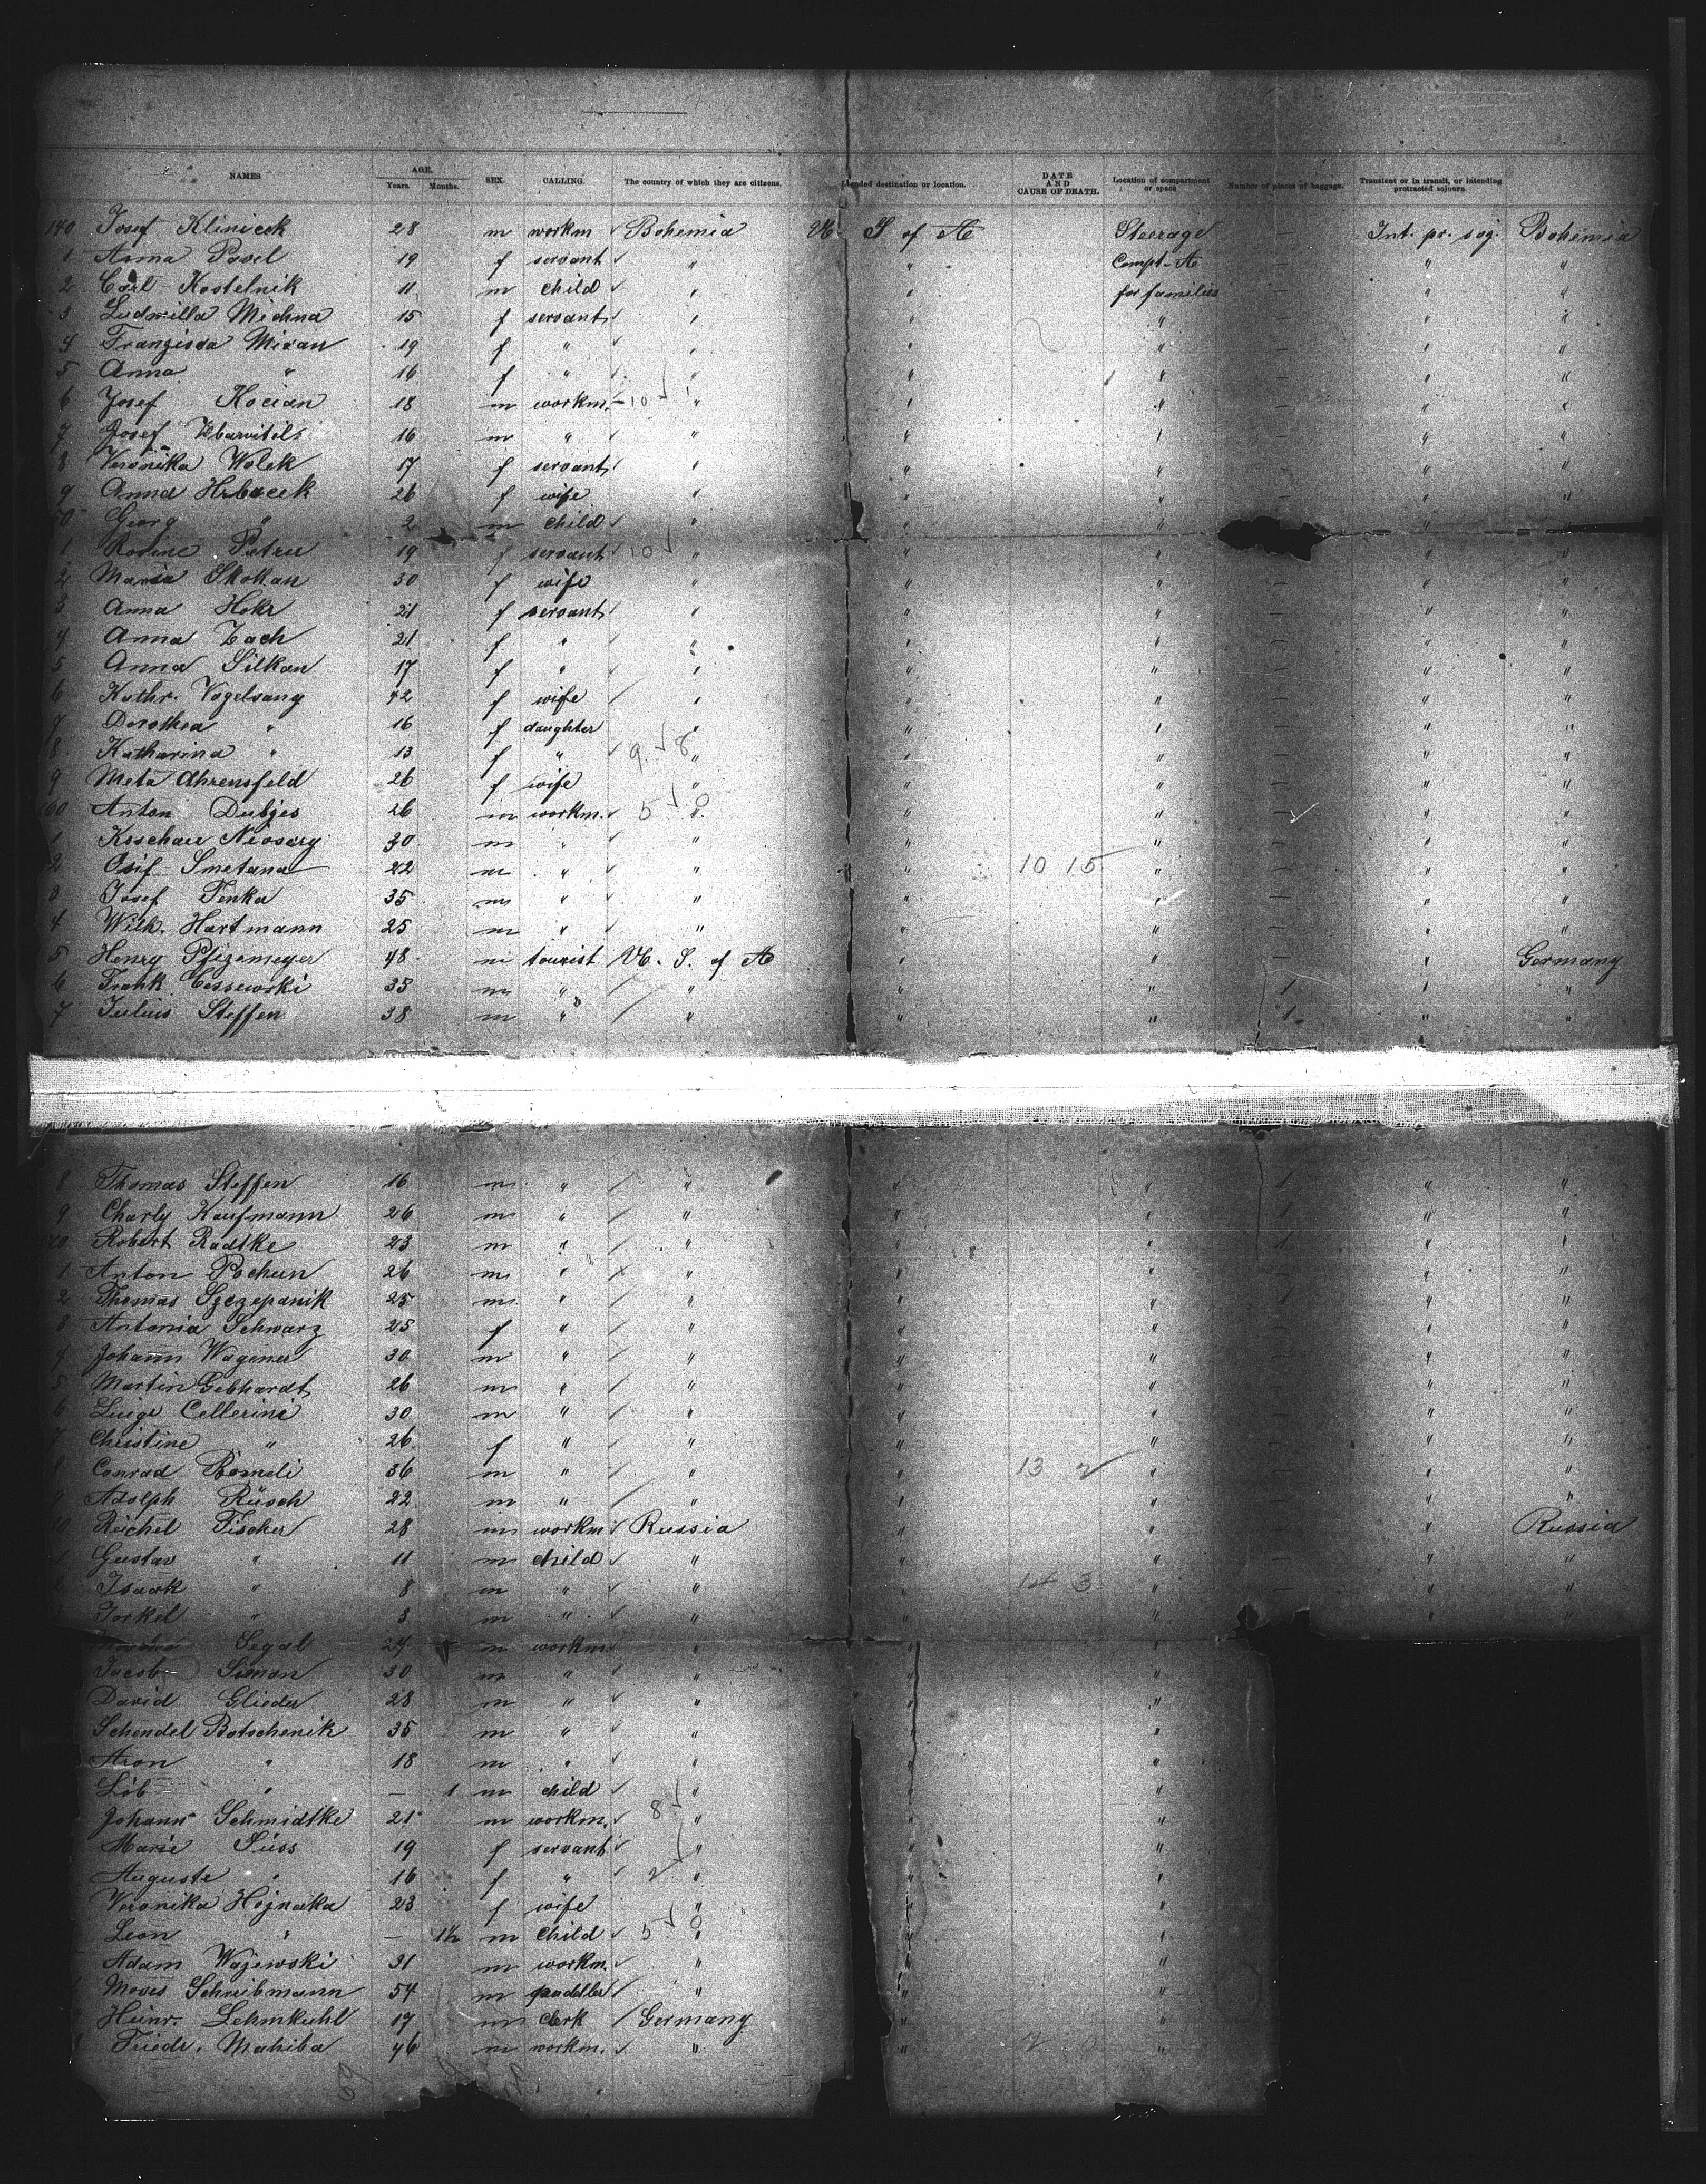 NAMES AGE. Years. Months. SEX. CALLING. The country of which they are citizens. Intended destination or location. DATE AND CAUSE OF DEATH. Location of compartment or space Number of pieces of baggage. Transient or in transit, or intending protracted sojourn.
140 Josef Klinicek 28 m workm Bohemia U. S of A Steerage Int. pr. soj. Bohemia
1 Anna Pavel 19 f servant " " Compt. A " "
2 Carl Kostelnik 11 m child " " for families " "
3 Ludmilla Michna 15 f servant " " " " "
4 Franzisca Mican 19 f " " " " " "
5 Anna " 16 f " " " " " "
6 Josef Kocian 18 m workm. 10 " " " " "
7 Josef 16 m " " " " " "
8 Veronika Wolek 17 f servant " " " " "
9 Anna Hrbacek 26 f wife " " " " "
50 Georg " 2 m child " " " " "
1 Rosine Petru 19 f servant 10 " " " " "
2 Maria Skokan 30 f wife " " " " "
3 Anna Hokr 21 f servant " " " " "
4 Anna Zach 21 f " " " " " "
5 Anna Silkan 17 f " " " " " "
6 Kathr. Vogelsang 42 f wife " " " " "
7 Dorothea " 16 f daughter " " " " "
8 Katharina " 13 f " 9 8 " " " " "
9 Meta Ahrensfeld 26 f wife " " " " "
160 Anton Dubjes 26 m workm. 5 0 " " " " "
1 Koschau 30 m " " " " " "
2 Osif Smetana 22 m " " " 10 15 " " "
3 Josef Tenka 35 m " " " " " "
4 Wilh. Hartmann 25 m " " " " " "
5 Henry Pfizemeyer 48 m tourist U. S. of A " " " Germany
6 Frank Cessewski 35 m " " " " 1 " "
7 Julius Steffen 38 m " " " " 1 " "
8 Thomas Steffen 16 m " " " " 1 " "
9 Charly Kaufmann 26 m " " " " 1 " "
170 Robert Radtke 23 m " " " " 1 " "
1 Anton Pochun 26 m " " " " " "
2 Thomas Szczepanik 25 m " " " " 1 " "
3 Antonia Schwarz 25 f " " " " " "
4 Johann Wagener 30 m " " " " " "
5 Martin Gebhardt 26 m " " " " " "
6 Luigi Cellerini 30 m " " " " " "
7 Christine " 26 f " " " " " "
8 Conrad Bömeli 36 m " " " 13 2 " " "
9 Adolph Rüsch 22 m " " " " " "
80 Reichel Fischer 28 m workm Russia " " " Russia
1 Gustav " 11 m child " " " " "
2 Isaak " 8 m " " " 14 3 " " "
3 Jorkel " 3 m " " " " " "
Segal 24 m workm. " " "
Jacob Simon 30 m " " " "
David Glieder 28 m " " " "
Schendel Botschenik 35 m " " " "
Aron " 18 m " " " "
Löb " — 1 m child " " "
Johann Schmidtke 21 m workm. 8 " " "
Marie Süss 19 f servant " " "
Auguste " 16 f " 2 " " "
Veronika Hojnacka 23 f wife " " "
Leon " — 1½ m child 5 0 " " "
Adam Wajewski 31 m workm. " " "
Moses Schreibmann 54 m peddler " " "
Heinr. Lehmkuhl 17 m clerk Germany " "
Friedr. Mahiba 46 m workm. " " 2 0 "
69